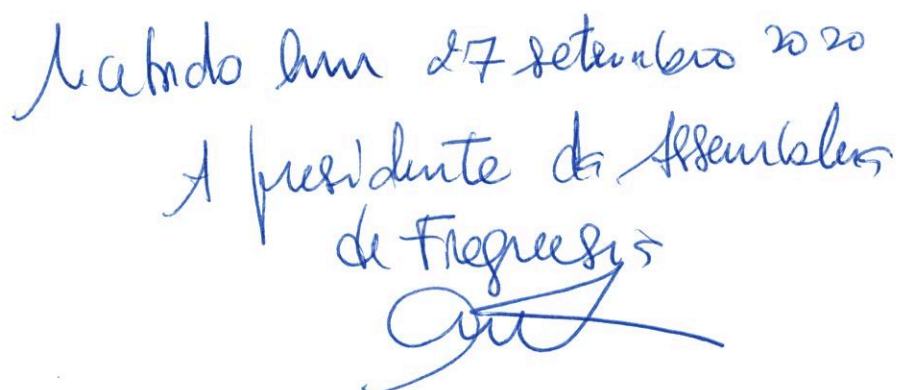 Recebido em 27 setembro 2020
A presidente da Assembleia
de Freguesia